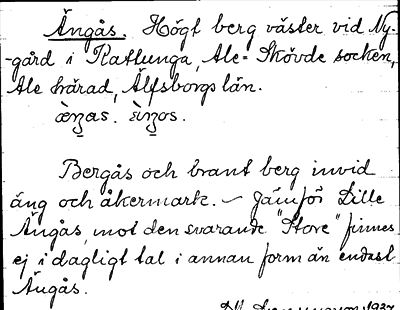 Ängås. Högt berg väster vid Ny-
-gård i Ratlunga, Ale-Skövde socken,
Ale härad, Älfsborgs län.
Bergås och brant berg invid
äng och åkermark. – Jämför Lille
Ängås, mot den svarande "Store" finnes
ej i dagligt tal i annan form än endast
Ängås.